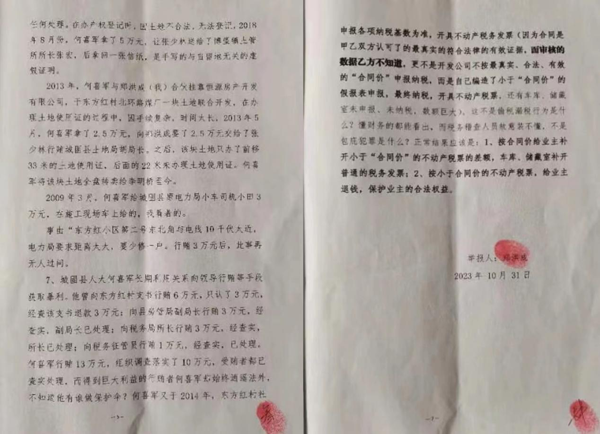 任何处理。在办产权登记所，因土地不合法，无法登记，2018
年8月份，何喜军拿了5万元，让张少林送给了博望镇土管
所所长张宏，后拿回一张信纸，是手写的与当留地无关的虚
假证明。
2013年，何喜军与郑洪成（我）合伙挂靠恒源房产开发
有限公司，于东方红村北环路煤厂一块土地联合开发，在办
理土地使用证的过程中，因手续复杂，时间太长，2013年5
月，何喜军拿了2.5万元，向郑洪成要了2.5万元交给了张
少林行贿城固县土地局胡局长，之后，该块土地只办了前移
35米的土地使用证，后面的22米未办理土地使用证。何喜
军将该块土地全盘转卖给李明桥至今。
2009年3月，何喜军给城固县原电力局小车司机小田3
万元，在施工现场车上给的，我看着的。
事由"东方红小区第二号东北角与电线10千伏太近，
电力局要求距离太大，要少修一户。行贿3万元后，此事离
开人过问。
7、城固县人大何喜军长期利用关系向领导行贿等手段
获取暴利。他曾向东方红村支书行贿6万元，只认了3万元，
经查该支书退款3万元；向县房管局副局长行贿3万元，经
查实，副局长已处理；向税务局所长行贿3万元，经查实，
所长已处理；向税务征管员行贿1万元，经查实，已处理。
何喜军行贿13万元，组织调查落实了10万元，受贿者都已
查实处理，而得到巨大利益的行贿者何喜军却始终逍遥法外，
不知道他有谁做保护伞？何喜军又于2014年，东方红村杜
申报各项纳税基数为准，开具不动产税务发票（因为合同是
甲乙双方认可了的最真实的符合法律的有效证据，而审核的
数据乙方不知道，更不是开发公司不按最真实、合法、有效
的"合同价"申报纳税，而是自己编造了小于"合同价"的
假报表申报，最终纳税，开具不动产税票，还有车库、储藏
室未申报、未纳税、数额巨大），这不是偷税漏税行为是什
么？懂财务的都能看出，而税务稽查人员故意装不懂，不是
包庇犯罪是什么？正常结果应该是：1、按合同价给业主补
开小于"合同价"的不动产税票的差额，车库、储藏室补开
普通的税务发票；2、按小于合同价的不动产税票，给业主
退钱，保护业主的合法权益。
举报人：郑洪成
2023年10月31日